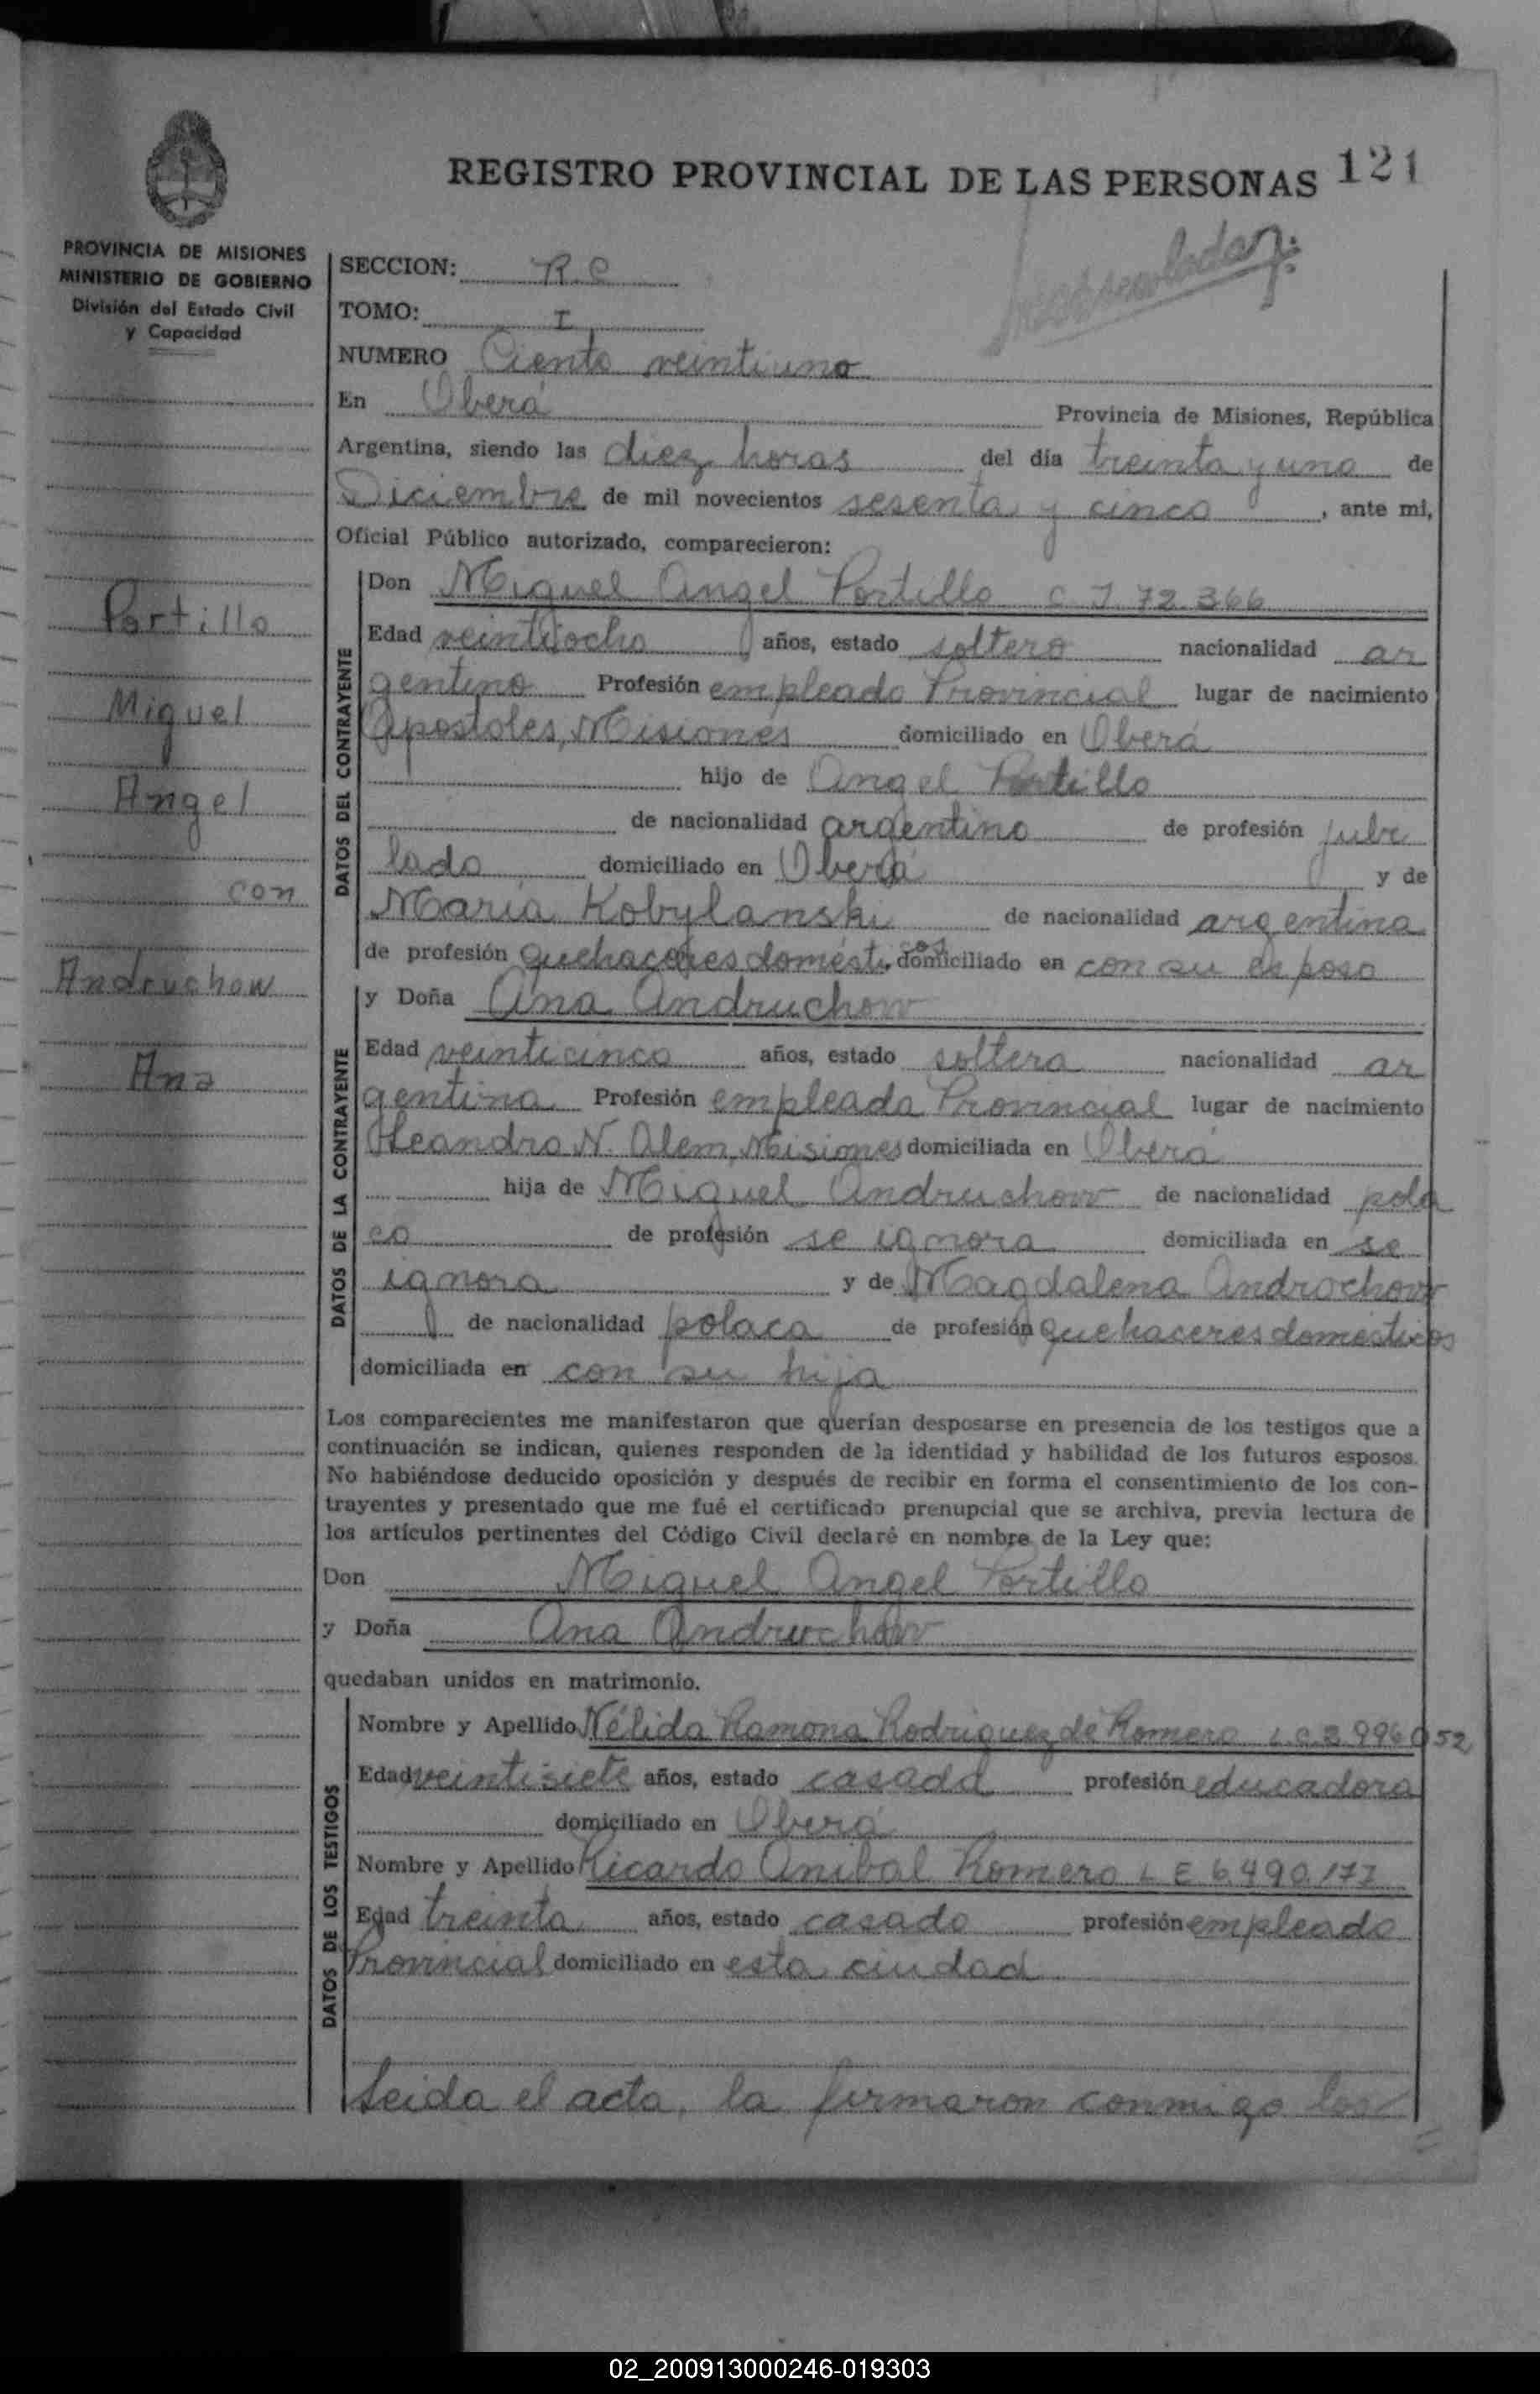 REGISTRO PROVINCIAL DE LAS PERSONAS 121
PROVINCIA DE MISIONES
MINISTERIO DE GOBIERNO
División del Estado Civil
y Capacidad
Portillo
Miguel
Angel
con
Andruchow
Ana
SECCION: R.C
TOMO: I
NUMERO Ciento veintiuno
En Oberá Provincia de Misiones, República
Argentina, siendo las diez horas del día treinta y uno de
Diciembre de mil novecientos sesenta y cinco, ante mi,
Oficial Público autorizado, comparecieron:
DATOS DEL CONTRAYENTE
Don Miguel Angel Portillo C I 72.366
Edad veintiocho años, estado soltero nacionalidad ar
gentino Profesión empleado Provincial lugar de nacimiento
Apostoles, Misiones domiciliado en Oberá
hijo de Angel Portillo
de nacionalidad argentino de profesión jubi
lado domiciliado en Oberá y de
Maria Kobylanski de nacionalidad argentina
de profesión quehaceres domésticos domiciliado en con su esposo
DATOS DE LA CONTRAYENTE
y Doña Ana Andruchow
Edad veinticinco años, estado soltera nacionalidad ar
gentina Profesión empleada Provincial lugar de nacimiento
Leandro N. Alem, Misiones domiciliada en Oberá
hija de Miguel Andruchow de nacionalidad pola
co de profesión se ignora domiciliada en se
ignora y de Magdalena Androchow
de nacionalidad polaca de profesión quehaceres domesticos
domiciliada en con su hija
Los comparecientes me manifestaron que querían desposarse en presencia de los testigos que a
continuación se indican, quienes responden de la identidad y habilidad de los futuros esposos.
No habiéndose deducido oposición y después de recibir en forma el consentimiento de los con-
trayentes y presentado que me fué el certificado prenupcial que se archiva, previa lectura de
los artículos pertinentes del Código Civil declaré en nombre de la Ley que:
Don Miguel Angel Portillo
y Doña Ana Andruchow
quedaban unidos en matrimonio.
DATOS DE LOS TESTIGOS
Nombre y Apellido Nélida Ramona Rodriguez de Romero L.C.3.996.052
Edad veintisiete años, estado casada profesión educadora
domiciliado en Oberá
Nombre y Apellido Ricardo Anibal Romero L E 6.490.177
Edad treinta años, estado casado profesión empleado
Provincial domiciliado en esta ciudad
Leida el acta, la firmaron conmigo los
02_200913000246-019303